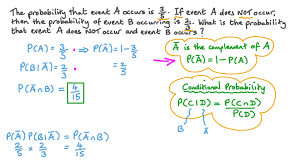 The probability that event A occurs is 3/5. If event A does NOT occur,
the probability of event B occurring is 2/3. What is the probability
that event A does NOT occur and event B occurs?
P(A) = 3/5 ⇒ P(Ā) = 1 - 3/5
= 2/5
P(B|Ā) = 2/3
P(Ā∩B) = 4/15
Ā is the complement of A
P(Ā) = 1 - P(A)
Conditional Probability
P(C|D) = P(C∩D)/P(D)
B Ā
P(Ā)P(B|Ā) = P(Ā∩B)
2/5 × 2/3 = 4/15